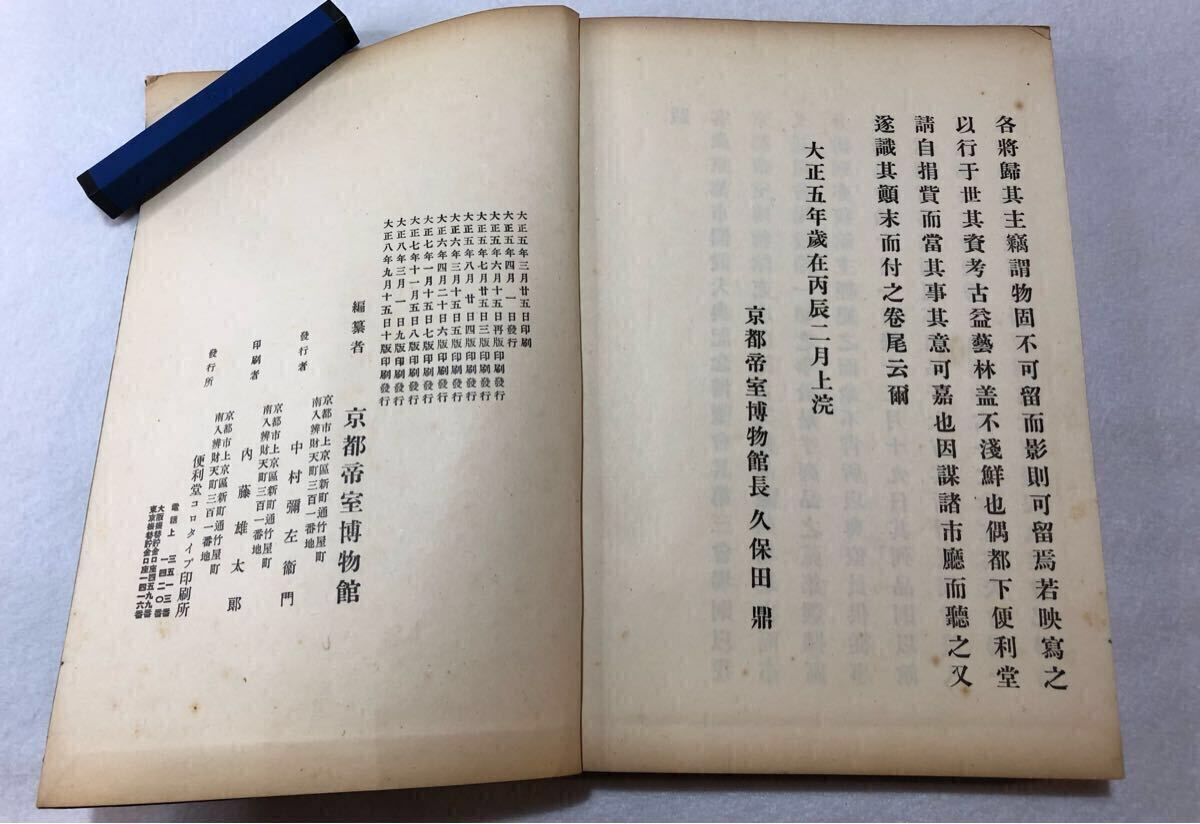 各將歸其主竊謂物固不可留而影則可留焉若映寫之
以行于世其資考古益藝林盖不淺鮮也偶都下便利堂
請自捐貲而當其事其意可嘉也因謀諸市廳而聽之又
遂識其顚末而付之卷尾云爾
大正五年歲在丙辰二月上浣
京都帝室博物館長 久保田 鼎
大正五年三月廿五日印刷
大正五年四月一日發行
大正五年六月十五日再版印刷發行
大正五年七月廿五日三版印刷發行
大正五年八月廿日四版印刷發行
大正六年三月十五日五版印刷發行
大正六年四月二十日六版印刷發行
大正七年一月十五日七版印刷發行
大正七年十一月五日八版印刷發行
大正八年三月一日九版印刷發行
大正八年九月十五日十版印刷發行
編纂者 京都帝室博物館
京都市上京區新町通竹屋町
南入辨財天町三百一番地
發行者 中村彌左衞門
京都市上京區新町通竹屋町
南入辨財天町三百一番地
印刷者 內藤雄太郎
京都市上京區新町通竹屋町
南入辨財天町三百一番地
發行所 便利堂コロタイプ印刷所
電話上 三五一三番
一四二〇番
大阪振替貯金口座四五九九番
東京振替貯金口座一四一六番